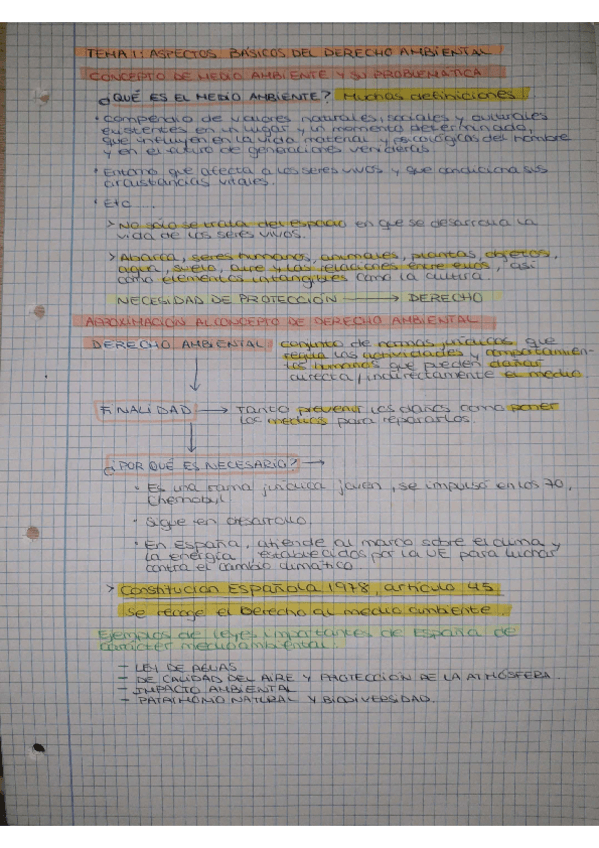 TEMA 1: ASPECTOS BÁSICOS DEL DERECHO AMBIENTAL
CONCEPTO DE MEDIO AMBIENTE Y SU PROBLEMÁTICA
¿QUÉ ES EL MEDIO AMBIENTE? Muchas definiciones
• Compendio de valores naturales, sociales y culturales
existentes en un lugar y un momento determinado,
que influyen en la vida material y psicológica del hombre
y en el futuro de generaciones venideras.
• Entorno que afecta a los seres vivos y que condiciona sus
circustancias vitales.
• Etc ....
> No sólo se trata del espacio en que se desarrolla la
vida de los seres vivos.
> Abarca, seres humanos, animales, plantas, objetos,
agua, suelo, aire y las relaciones entre ellos, así
como elementos intangibles como la cultura.
NECESIDAD DE PROTECCIÓN → DERECHO
APROXIMACIÓN AL CONCEPTO DE DERECHO AMBIENTAL
DERECHO AMBIENTAL conjunto de normas jurídicas que
regula las actividades y comportamien-
tos humanos que pueden dañar
directa / indirectamente el medio
FINALIDAD → Tanto prevenir los daños como poner
los medios para repararlos.
¿POR QUÉ ES NECESARIO? →
• Es una rama jurídica joven, se impulsó en los 70,
Chernobyl
• Sigue en desarrollo
• En España, atiende al marco sobre el clima y
la energía, establecidos por la UE para luchar
contra el cambio climático.
> Constitución Española 1978, artículo 45
se recoge el Derecho al medio ambiente.
Ejemplos de leyes importantes de España de
carácter medioambiental:
- LEY DE AGUAS
- DE CALIDAD DEL AIRE Y PROTECCIÓN DE LA ATMÓSFERA.
- IMPACTO AMBIENTAL
- PATRIMONIO NATURAL Y BIODIVERSIDAD.